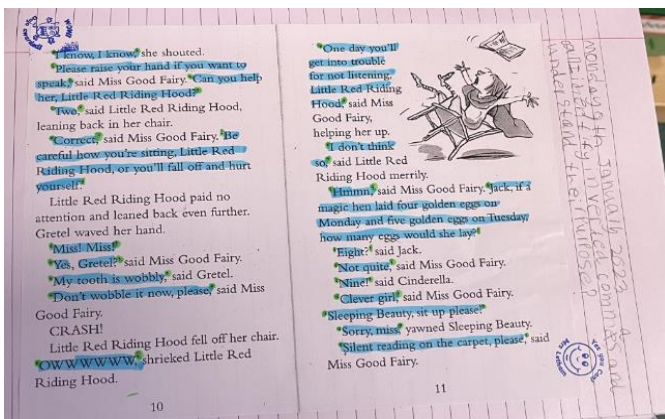 "I know, I know," she shouted.
"Please raise your hand if you want to
speak," said Miss Good Fairy. "Can you help
her, Little Red Riding Hood?"
"Two," said Little Red Riding Hood,
leaning back in her chair.
"Correct," said Miss Good Fairy. "Be
careful how you're sitting, Little Red
Riding Hood, or you'll fall off and hurt
yourself."
Little Red Riding Hood paid no
attention and leaned back even further.
Gretel waved her hand.
"Miss! Miss!"
"Yes, Gretel?" said Miss Good Fairy.
"My tooth is wobbly," said Gretel.
"Don't wobble it now, please," said Miss
Good Fairy.
CRASH!
Little Red Riding Hood fell off her chair.
"OWWWWWW," shrieked Little Red
Riding Hood.
10
"One day you'll
get into trouble
for not listening,
Little Red Riding
Hood," said Miss
Good Fairy,
helping her up.
"I don't think
so," said Little Red
Riding Hood merrily.
"Hmmn," said Miss Good Fairy. "Jack, if a
magic hen laid four golden eggs on
Monday and five golden eggs on Tuesday,
how many eggs would she lay?"
"Eight?" said Jack.
"Not quite," said Miss Good Fairy.
"Nine!" said Cinderella.
"Clever girl," said Miss Good Fairy.
"Sleeping Beauty, sit up please."
"Sorry, miss," yawned Sleeping Beauty.
"Silent reading on the carpet, please," said
Miss Good Fairy.
11
Monday 9th January 2023
inverted commas and
understand their purpose?